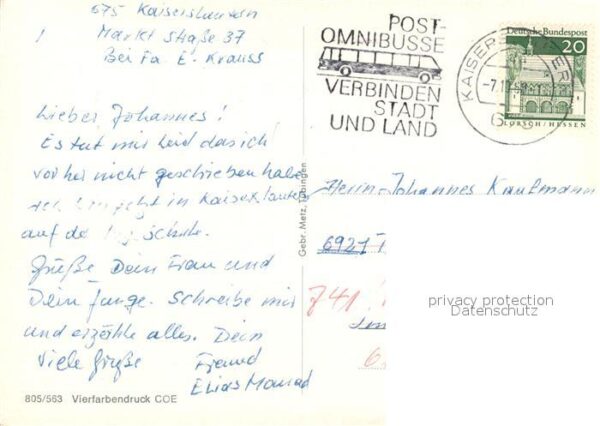 675 Kaiserslautern
Markt Straße 37
Bei Fa. E. Krauss
Lieber Johannes!
Es tut mir Leid das ich
vorher nicht geschrieben habe
jetzt in Kaiserslautern
auf de schule.
Grüße Dein Frau und
Dein Junge. Schreibe mir
und erzähle alles. Dein
Viele Grüße Freund
Elias Mourad
805/563 Vierfarbendruck COE
Gebr. Metz, Tübingen
POST-
OMNIBUSSE
VERBINDEN
STADT
UND LAND
KAISER
Deutsche Bundespost
20
LORSCH/HESSEN
Herrn Johannes Kaufmann
6921
741
privacy protection
Datenschutz